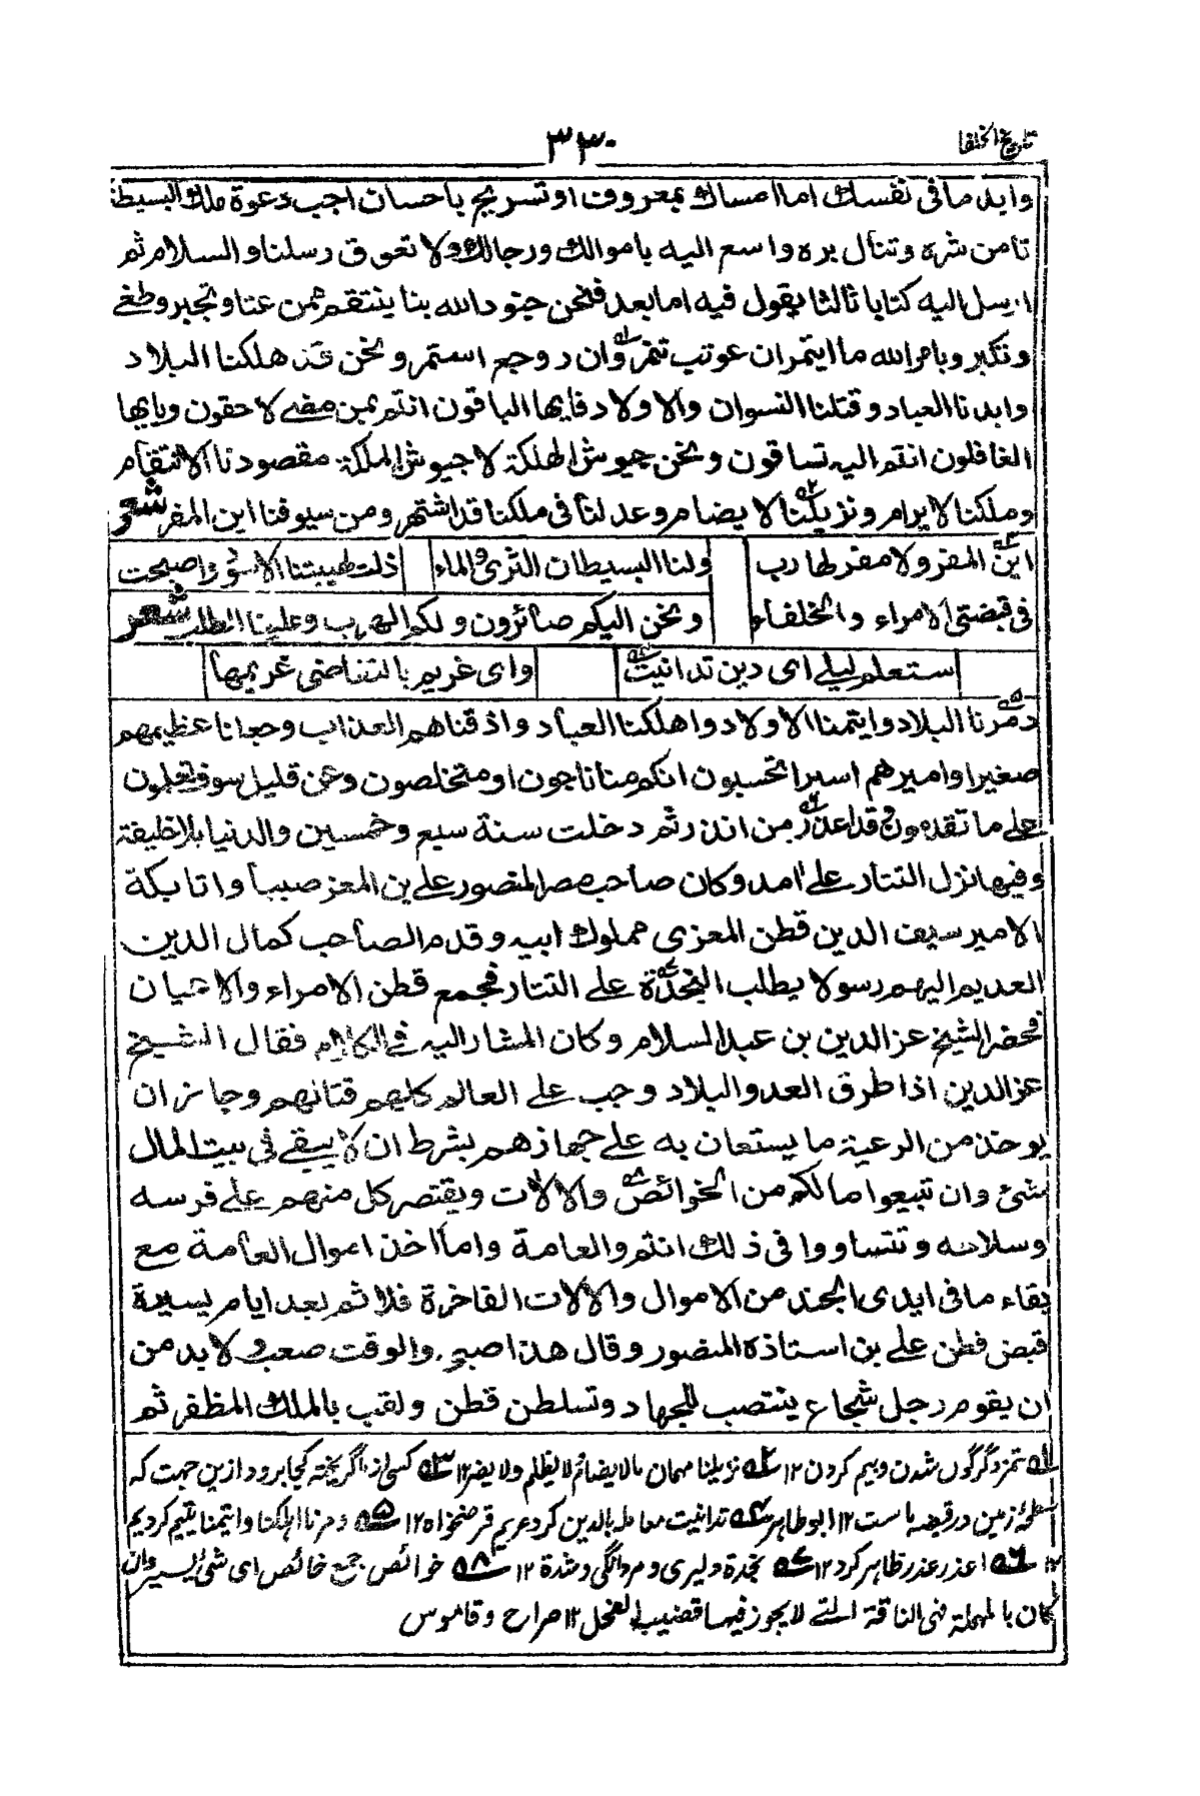 تاريخ الخلفا
٣٣٠
وابد ما فى نفسك اما امساك بمعروف او تسريح باحسان اجب دعوة ملك البسيطة
تامن شره وتنال بره واسع اليه باموالك ورجالك ولا تعوق رسلنا والسلام ثم
ارسل اليه كتابا ثالثا يقول فيه اما بعد فنحن جنود الله بنا ينتقم ممن عتا وتجبر وطغى
وتكبر وبامر الله ما ايتمر ان عوتب تنمر وان روجع استمر ونحن قد هلكنا البلاد
وابدنا العباد وقتلنا النسوان والاولاد فايها الباقون انتم بمن مضى لاحقون ويايها
الغافلون انتم اليه تساقون ونحن جيوش الهلكة لا جيوش الملكة مقصودنا الانتقام
وملكنا لا يرام ونزيلنا لا يضام وعدلنا فى ملكنا قد اشتهر ومن سيوفنا اين المفر شعر
اين المفر ولا مفر لهارب ولنا البسيطان الثرى والماء ذلت لهيبتنا الاسود واصبحت
فى قبضتى الامراء والخلفاء ونحن اليكم صائرون ولكم الهرب وعلينا الطلب شعر
ستعلم ليلى اى دين تدانيت واى غريم بالتقاضى غريمها
دمرنا البلاد وايتمنا الاولاد واهلكنا العباد واذقناهم العذاب وجعلنا عظيمهم
صغيرا واميرهم اسيرا تحسبون انكم منا ناجون او متخلصون وعن قليل سوف تعلمون
على ما تقدمون وقد اعذر من انذر ثم دخلت سنة سبع وخمسين والدنيا بلا خليفة
وفيها نزل التتار على امد وكان صاحب مصر المنصور على بن المعز صبيا واتابكة
الامير سيف الدين قطن المعزى مملوك ابيه وقدم الصاحب كمال الدين
العديم اليهم رسولا يطلب النجدة على التتار فجمع قطن الامراء والاعيان
فحضر الشيخ عز الدين بن عبد السلام وكان المشار اليه فى الكلام فقال الشيخ
عز الدين اذا طرق العدو البلاد وجب على العالم كلهم قتالهم وجاز ان
يوخذ من الرعية ما يستعان به على جهازهم بشرط ان لا يبقى فى بيت المال
شئ وان تبيعوا ما لكم من الخوائص والالات ويقتصر كل منهم على فرسه
وسلاحه وتتساووا فى ذلك انتم والعامة واما اخذ اموال العامة مع
بقاء ما فى ايدى الجند من الاموال والالات الفاخرة فلا ثم بعد ايام يسيرة
قبض قطن على بن استاذه المنصور وقال هذا صبى والوقت صعب ولا بد من
ان يقوم رجل شجاع ينتصب للجهاد وتسلطن قطن ولقب بالملك المظفر ثم
له تنمر دگرگوں شدن وبيم كردن ١٢ نزيلنا مهمان مالا يضام لا يظلم ولا يضر ١٢ كسى از ما گريخته كجا برود ازين جهت كه
سطح زمين در قبضه ماست ١٢ ابو طاهر تدانيت معامله بالدين كرد غريم قرضخواه ١٢ دمرنا اهلكنا وايتمنا يتيم كرديم
١٢ اعذر عذر ظاهر كرد ١٢ نجدة دليرى ومردانگى وشدة ١٢ خوائص جمع خائص اى شئ يسير وان
كان بالمهملة فهى الناقة التى لا يجوز فيها قضيب الفحل ١٢ صراح وقاموس